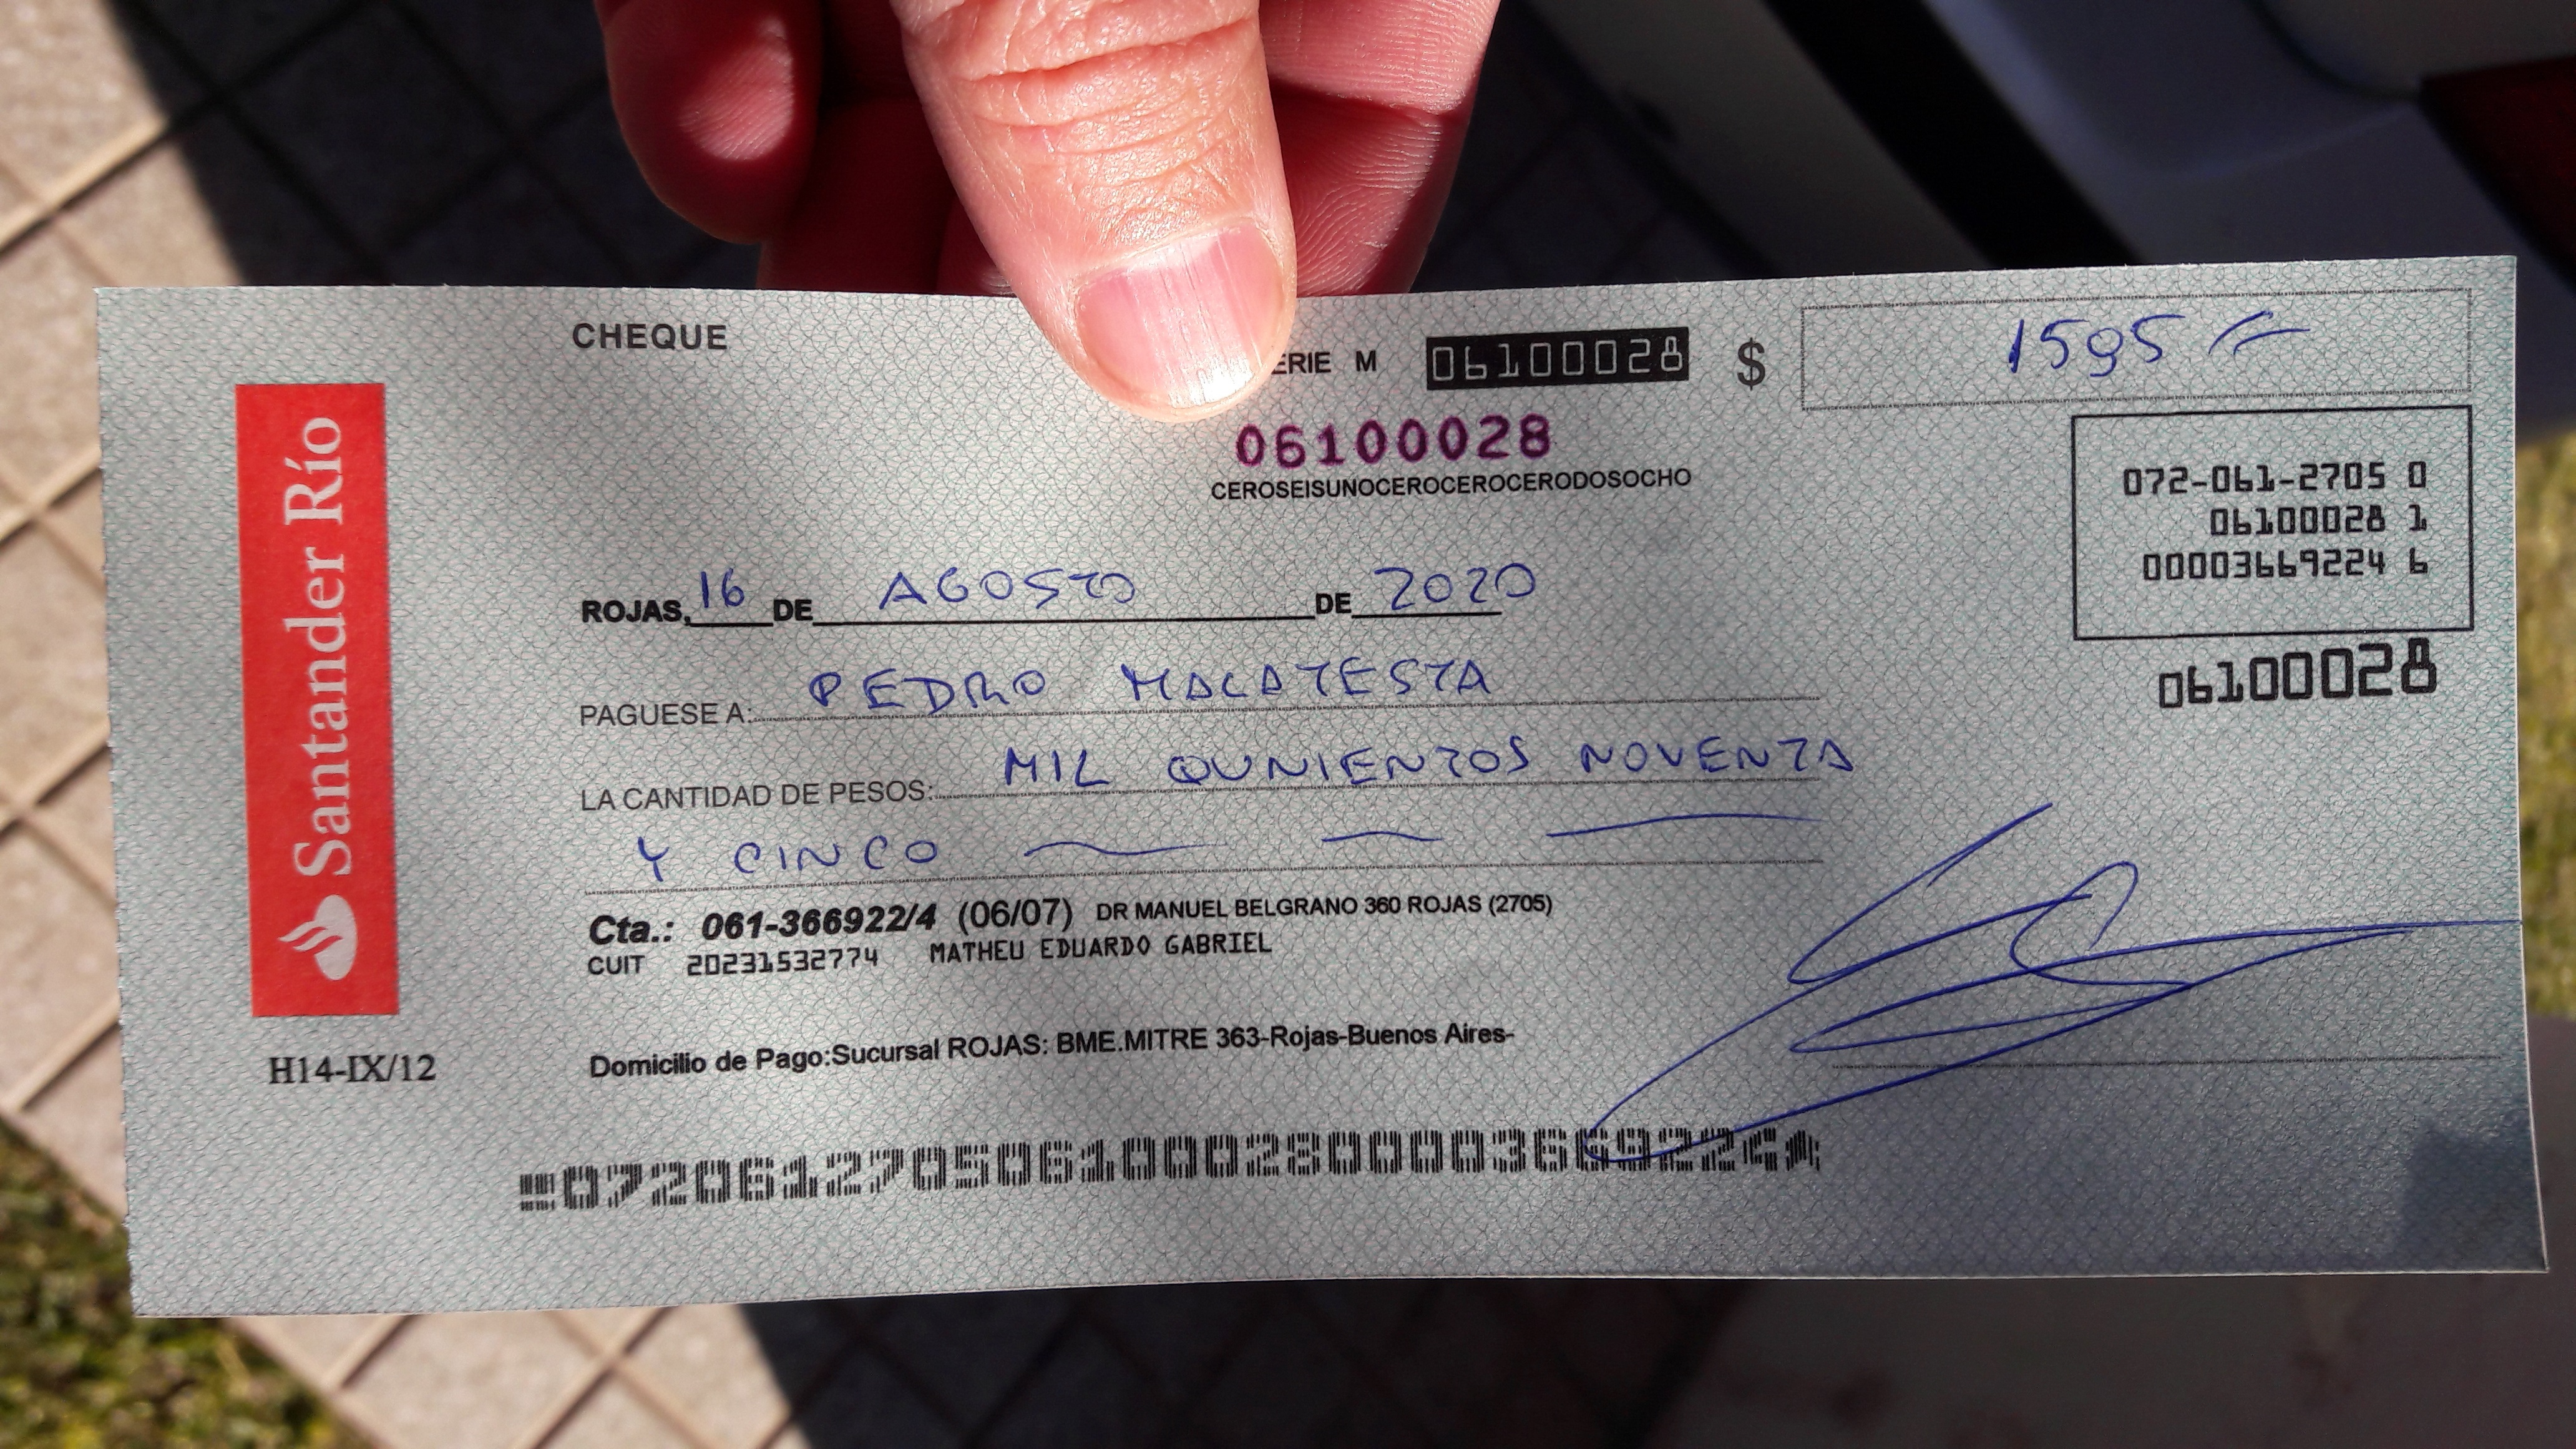 CHEQUE
ERIE M 06100028 $ 1595
06100028
CEROSEISUNOCEROCEROCERODOSOCHO
072-061-2705 0
06100028 1
00003669224 6
06100028
Santander Río
ROJAS, 16 DE AGOSTO DE 2020
PAGUESE A: PEDRO MALATESTA
LA CANTIDAD DE PESOS: MIL QUNIENTOS NOVENTA
Y CINCO
Cta.: 061-366922/4 (06/07) DR MANUEL BELGRANO 360 ROJAS (2705)
CUIT 20231532774 MATHEU EDUARDO GABRIEL
Domicilio de Pago:Sucursal ROJAS: BME.MITRE 363-Rojas-Buenos Aires-
H14-IX/12
07206127050610002800003669224